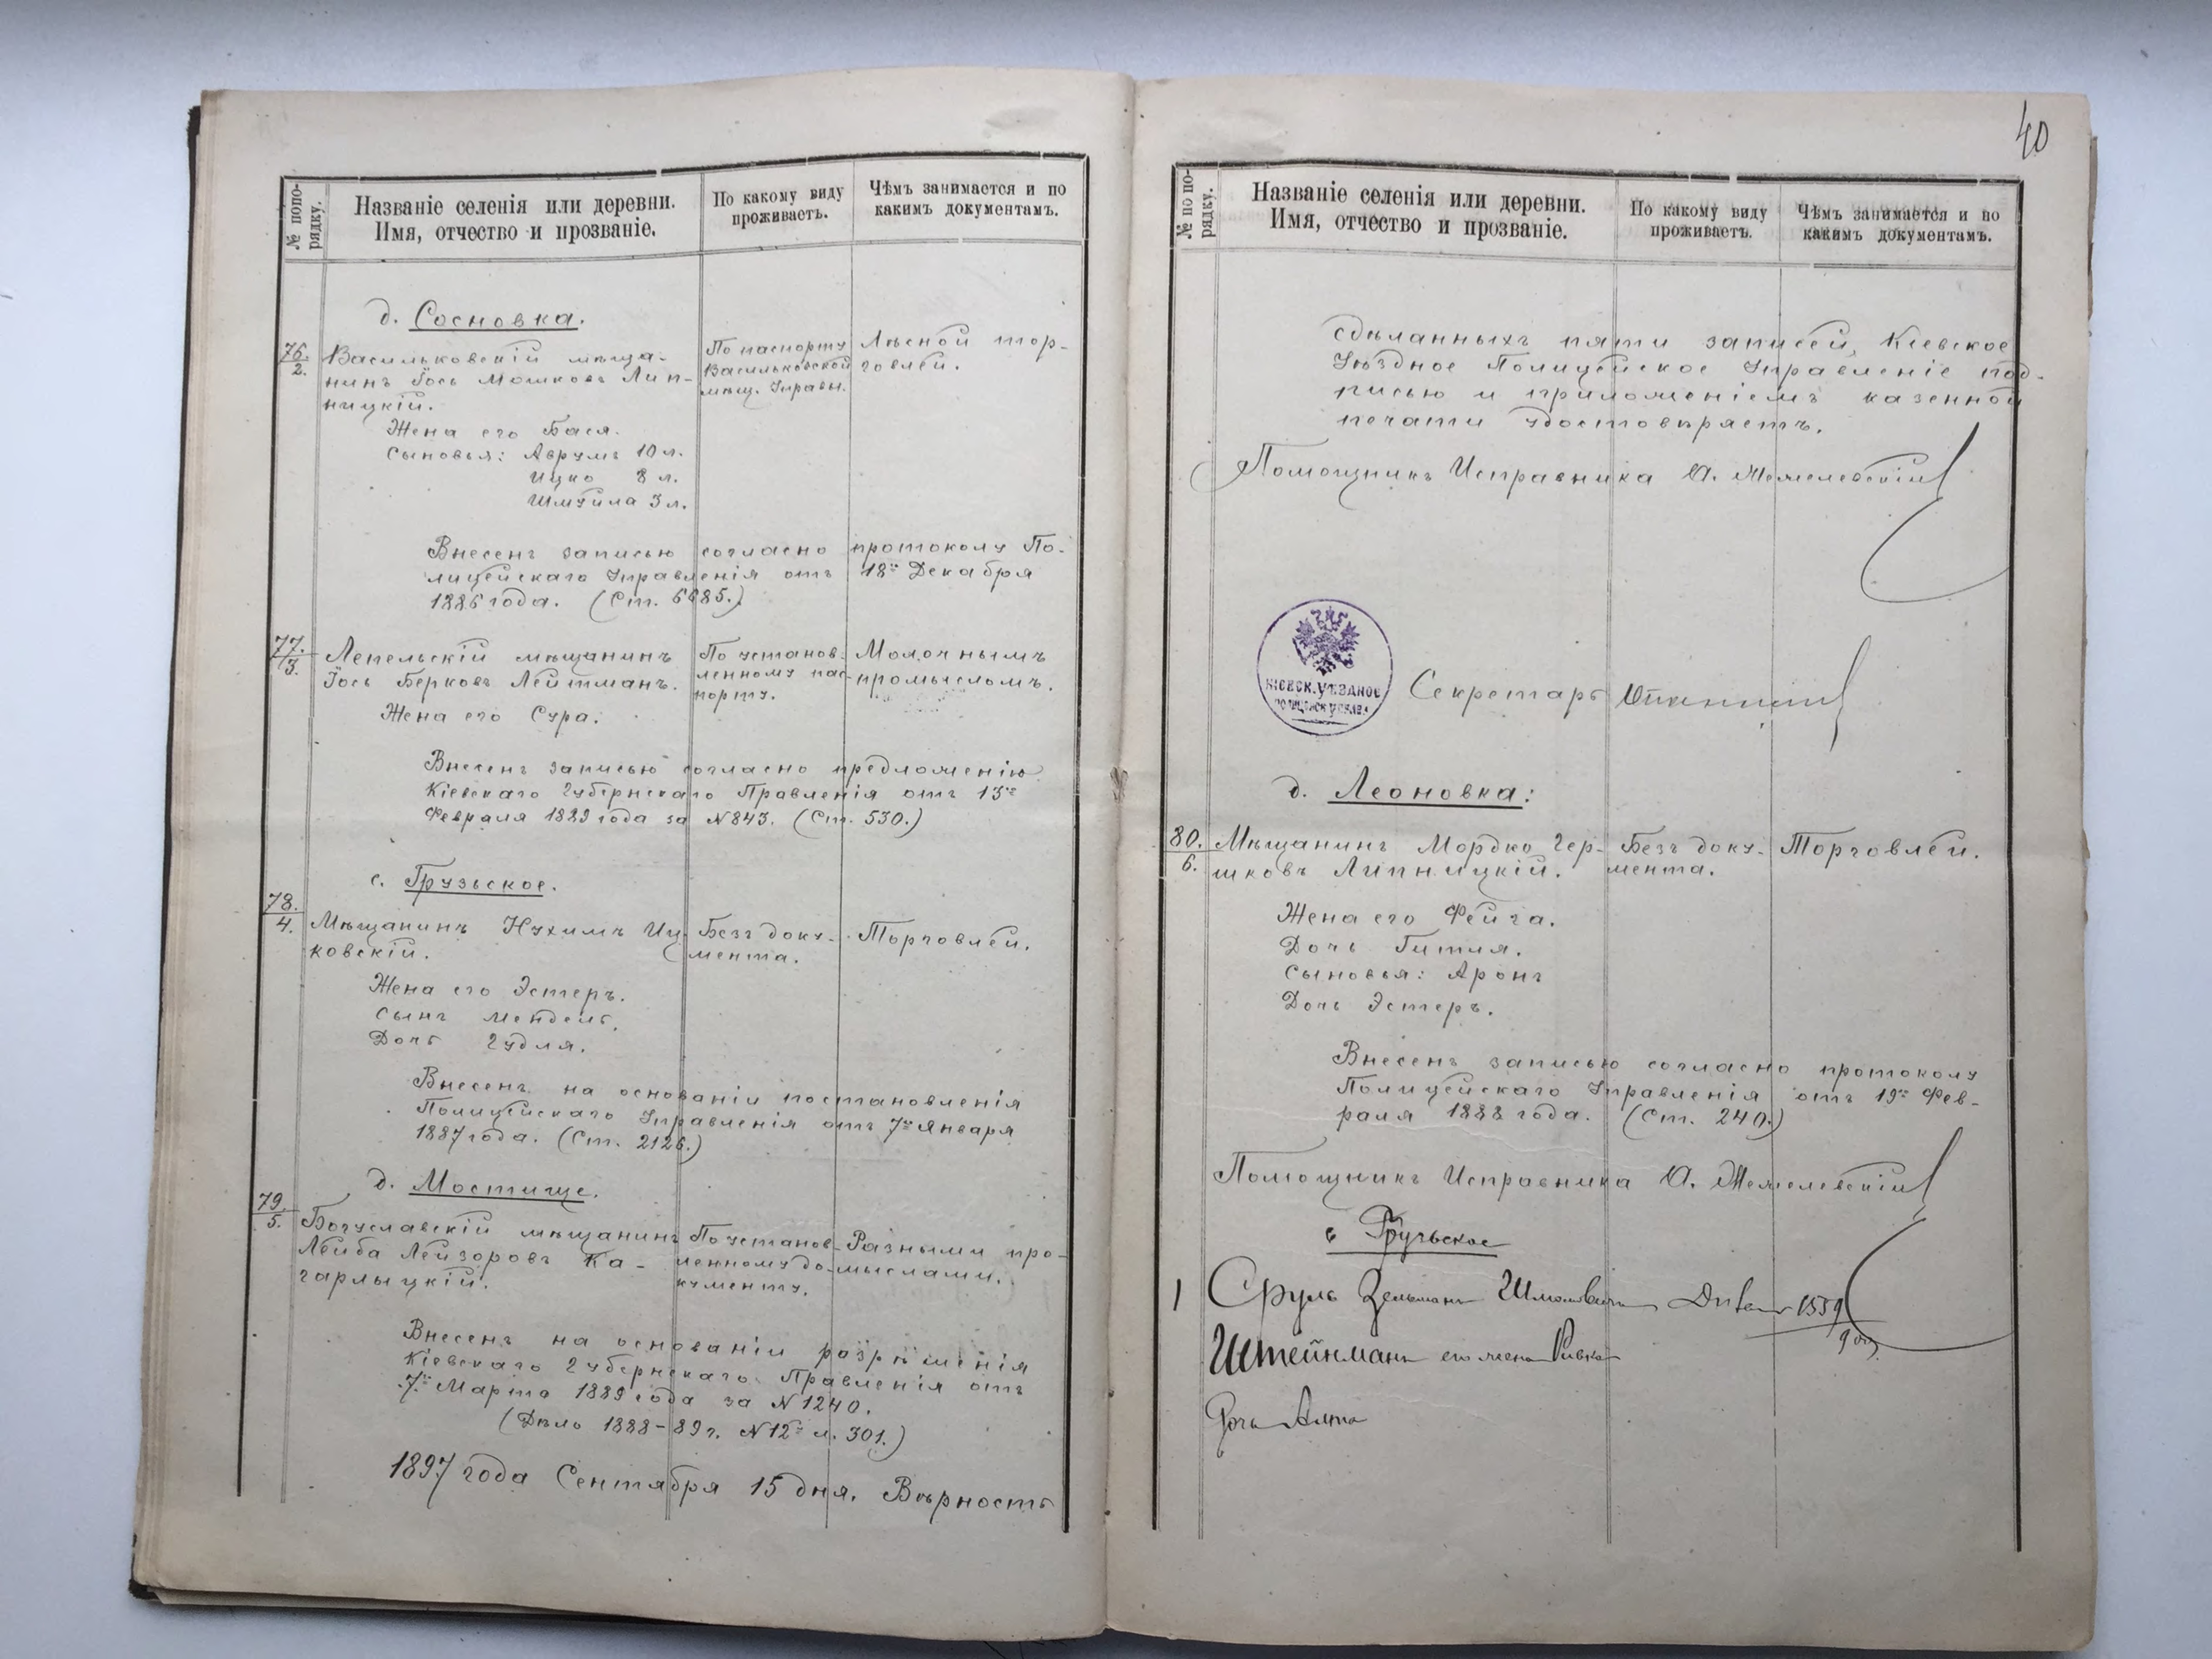 № попо-
рядку.
Названіе селенія или деревни.
Имя, отчество и прозваніе.
По какому виду
проживаетъ.
Чѣмъ занимается и по
какимъ документамъ.
д. Сосновка.
76.
2.
Васильковскій мѣща-
нинъ Іось Мошковъ Лип-
ницкій.
По паспорту
Васильковской
мѣщ. Управы.
Лѣсной тор-
говлей.
Жена его Бася.
Сыновья: Аврумъ 10 л.
Ицко 8 л.
Шмуйла 3 л.
Внесенъ записью согласно протоколу По-
лицейскаго Управленія отъ 18го Декабря
1886 года. (Ст. 6685.)
77.
3.
Лепельскій мѣщанинъ
Іось Берковъ Лейтманъ.
По установ-
ленному пас-
порту.
Молочнымъ
промысломъ.
Жена его Сура.
Внесенъ записью согласно предложенію
Кіевскаго Губернскаго Правленія отъ 13го
Февраля 1889 года за N 843. (Ст. 530.)
с. Грузьское.
78.
4.
Мѣщанинъ Нухимъ Иц-
ковскій.
Безъ доку-
мента.
Торговлей.
Жена его Эстеръ.
Сынъ Мендель.
Дочь Гудля.
Внесенъ на основаніи постановленія
Полицейскаго Управленія отъ 7го Января
1887 года. (Ст. 2126.)
д. Мостище.
79.
5.
Богуславскій мѣщанинъ
Лейба Лейзоровъ Ка-
гарлыцкій.
По установ-
ленному до-
кументу.
Разными про-
мыслами.
Внесенъ на основаніи разрѣшенія
Кіевскаго Губернскаго Правленія отъ
7го Марта 1889 года за N 1240.
(Дѣло 1888-89 г. N 12й л. 301.)
1897 года Сентября 15 дня. Вѣрность
40
№ по по-
рядку.
Названіе селенія или деревни.
Имя, отчество и прозваніе.
По какому виду
проживаетъ.
Чѣмъ занимается и по
какимъ документамъ.
сдѣланныхъ пяти записей, Кіевское
Уѣздное Полицейское Управленіе под-
писью и приложеніемъ казенной
печати удостовѣряетъ.
Помощникъ Исправника
КІЕВСК. УѢЗДНОЕ
ПОЛИЦЕЙСК. УПРАВЛ.
Секретарь
д. Леоновка:
80.
6.
Мѣщанинъ Мордко Гер-
шковъ Липницкій.
Безъ доку-
мента.
Торговлей.
Жена его Фейга.
Дочь Гитля.
Сыновья: Аронъ
Дочь Эстеръ.
Внесенъ записью согласно протоколу
Полицейскаго Управленія отъ 19го Фев-
раля 1888 года. (Ст. 240.)
Помощникъ Исправника
с Грузьское
1
Сруль Зельманъ
Штейнманъ его жена Ривка
Дочь